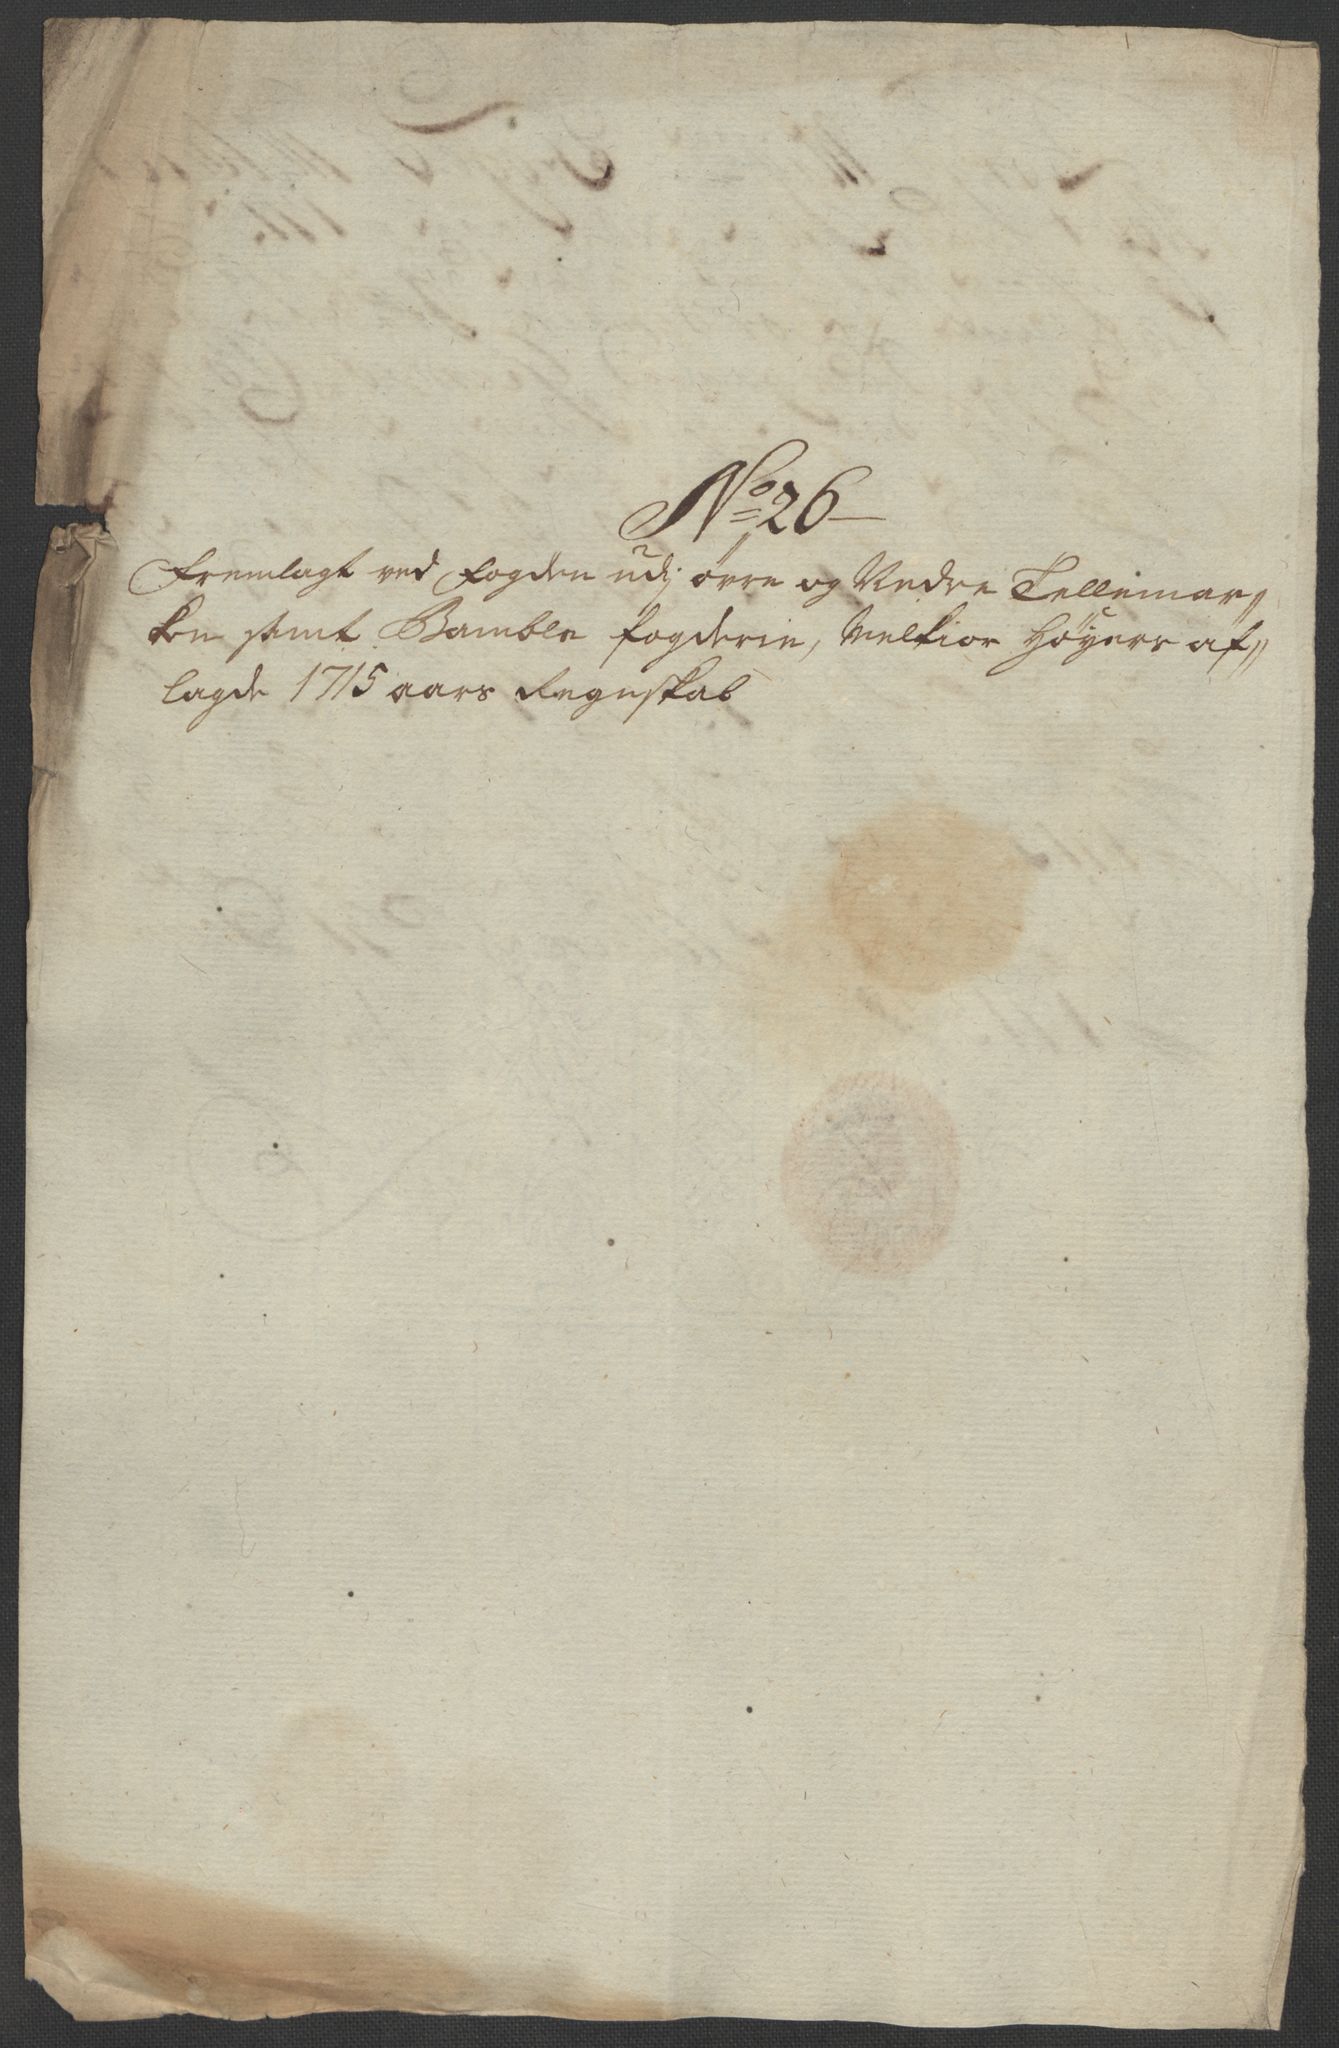 No 26
Fremlagt ved Fogden udj øvre og Nedre Tellemar〃
ken samt Bamble fogderie, Melkior Höyers af〃
lagde 1715 aars Regnskab